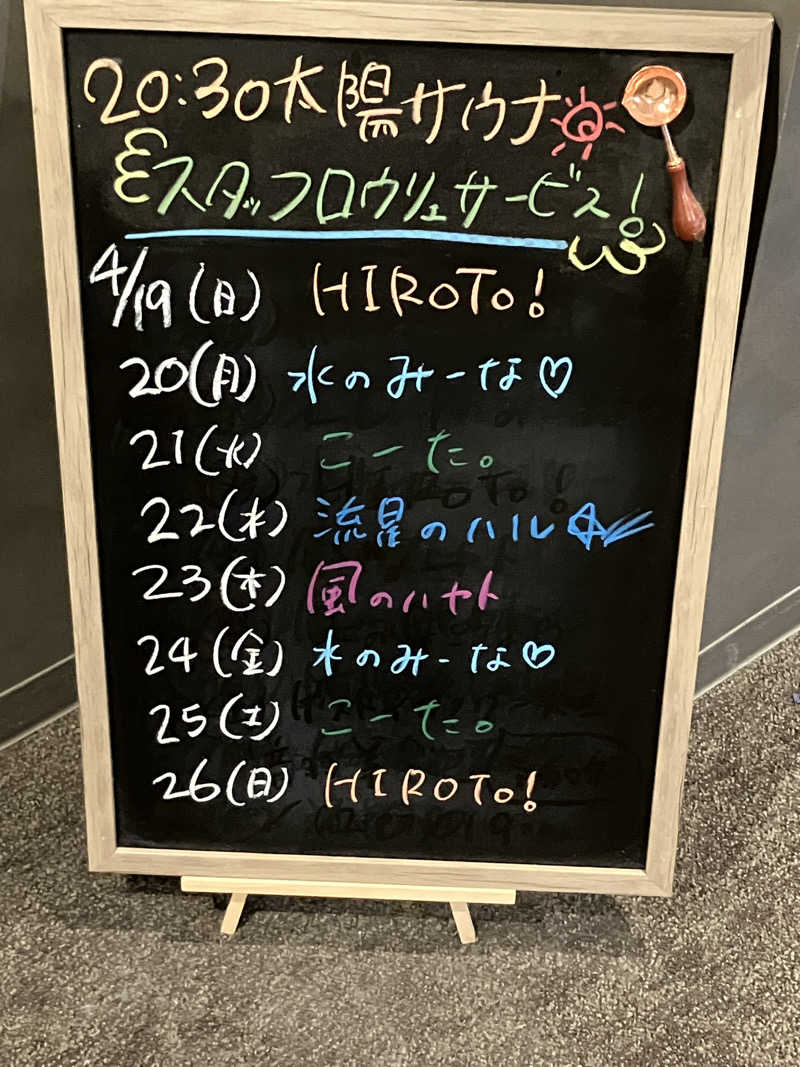 20:30太陽サウナ
スタッフロウリュサービス!
4/19(日) HIROTO!
20(月) 水のみーな♡
21(火) こーた。
22(水) 流星のハル☆
23(木) 風のハヤト
24(金) 水のみーな♡
25(土) こーた。
26(日) HIROTO!